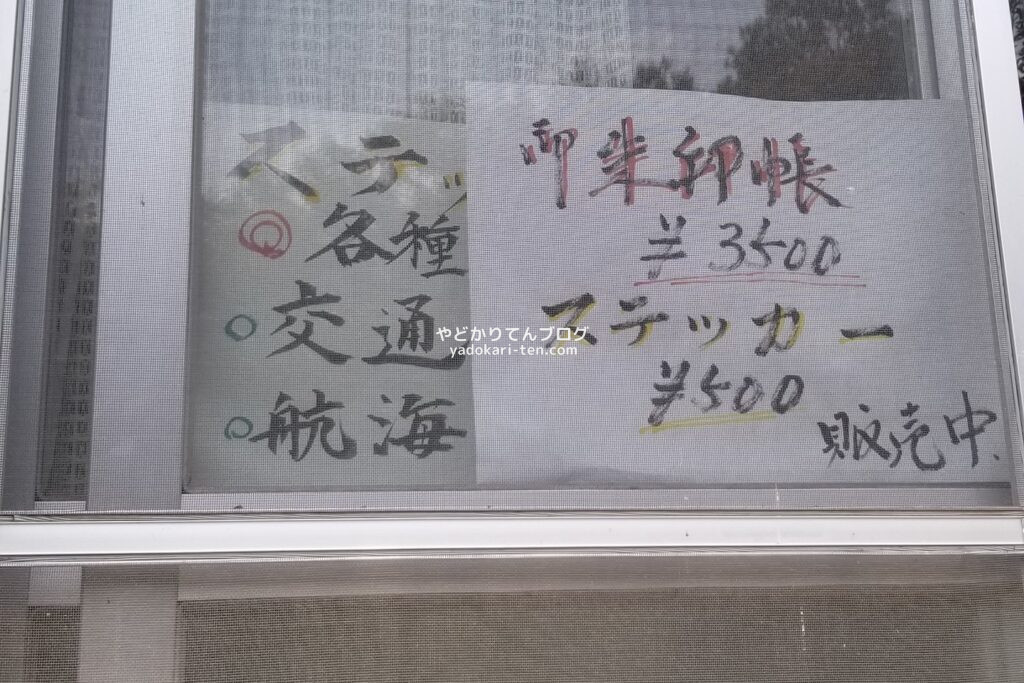 ステッ
◎各種
○交通
○航海
御朱印帳
¥3500
ステッカー
¥500
販売中.
やどかりてんブログ
yadokari-ten.com